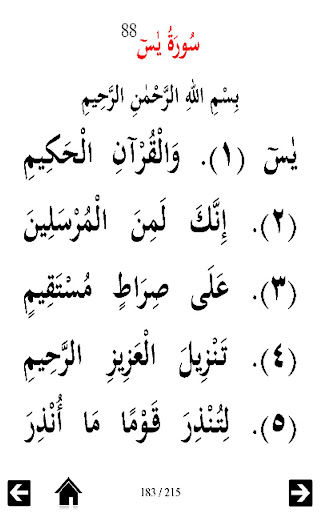 سُورَةُ يٰسٓ88
بِسْمِ اللهِ الرَّحْمٰنِ الرَّحِيمِ
يٰسٓ (١). وَالْقُرْآنِ الْحَكِيمِ
(٢). إِنَّكَ لَمِنَ الْمُرْسَلِينَ
(٣). عَلَى صِرَاطٍ مُسْتَقِيمٍ
(٤). تَنْزِيلَ الْعَزِيزِ الرَّحِيمِ
(٥). لِتُنْذِرَ قَوْمًا مَا أُنْذِرَ
183 / 215